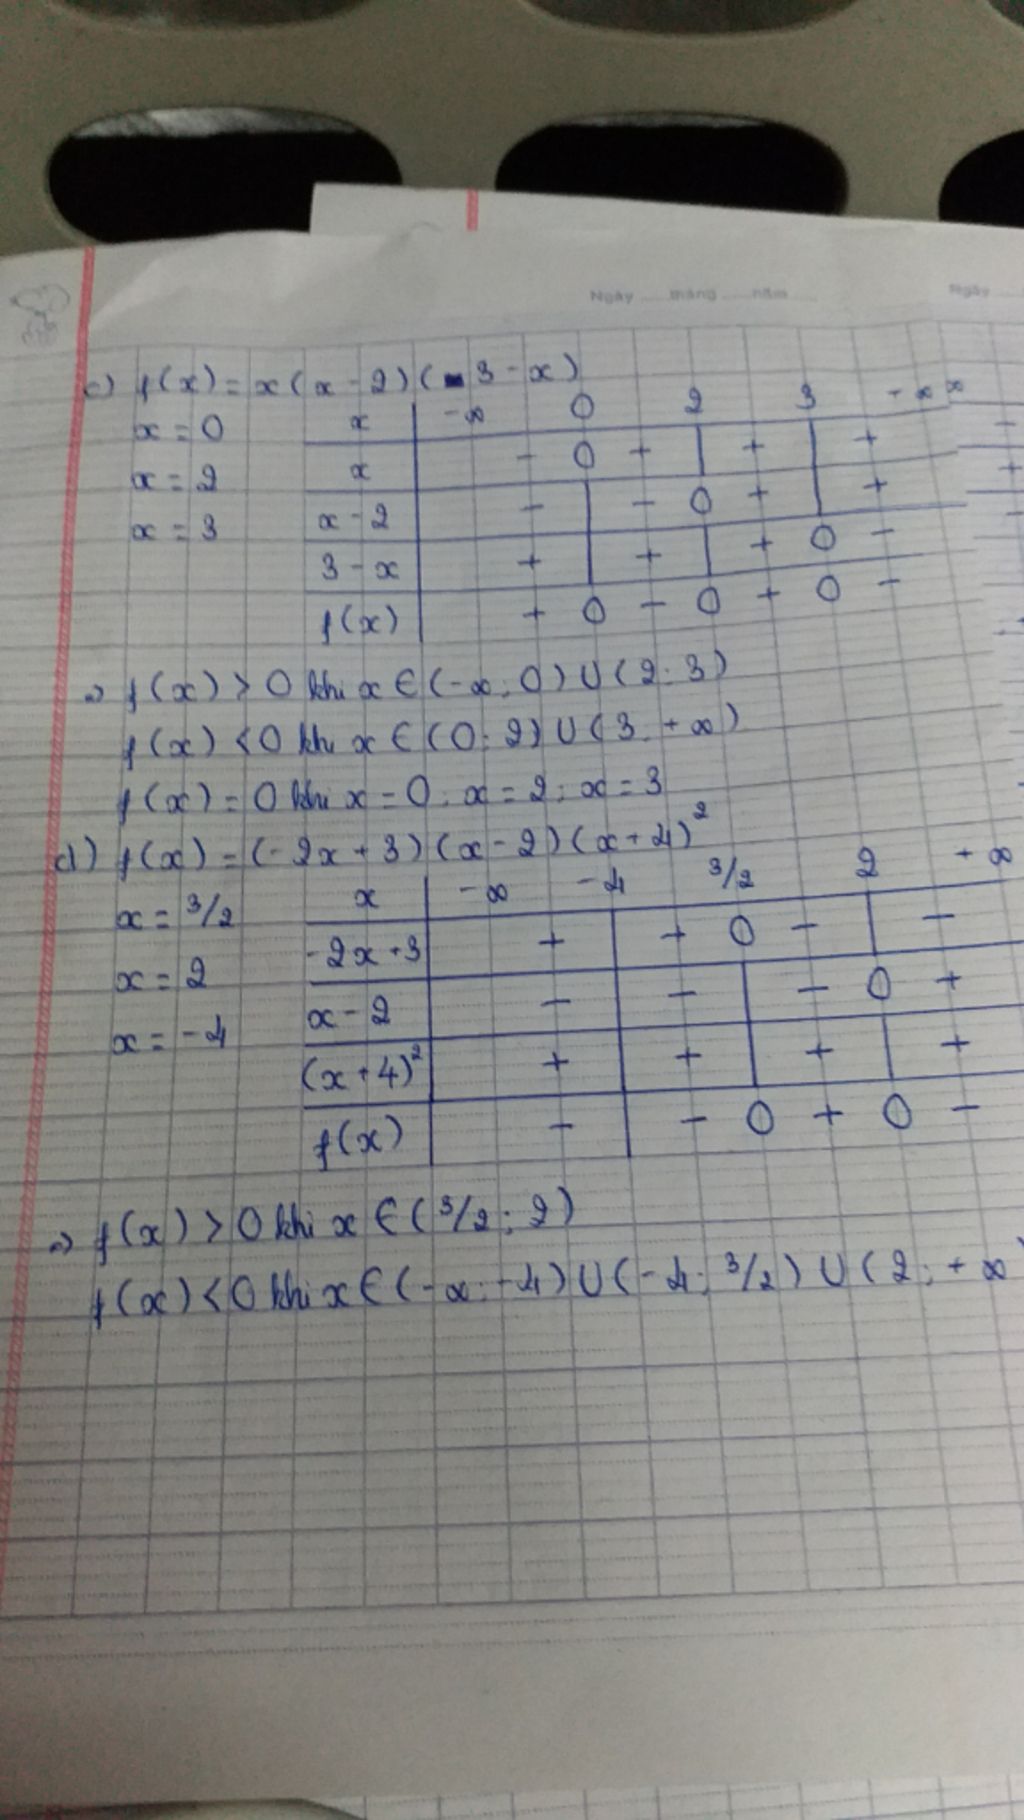 Ngày ..... tháng ..... năm ..... Ngày .....
c) f(x) = x(x - 2)(3 - x)
x = 0
x = 2
x = 3
x -∞ 0 2 3 +∞
x - 0 + | + | +
x - 2 - | - 0 + | +
3 - x + | + | + 0 -
f(x) + 0 - 0 + 0 -
=> f(x) > 0 khi x ∈ (-∞; 0) ∪ (2; 3)
f(x) < 0 khi x ∈ (0; 2) ∪ (3; +∞)
f(x) = 0 khi x = 0; x = 2; x = 3
d) f(x) = (-2x + 3)(x - 2)(x + 4)²
x = 3/2
x = 2
x = -4
x -∞ -4 3/2 2 +∞
-2x + 3 + | + 0 - | -
x - 2 - | - | - 0 +
(x + 4)² + | + | + | +
f(x) - | - 0 + 0 -
=> f(x) > 0 khi x ∈ (3/2; 2)
f(x) < 0 khi x ∈ (-∞; -4) ∪ (-4; 3/2) ∪ (2; +∞)